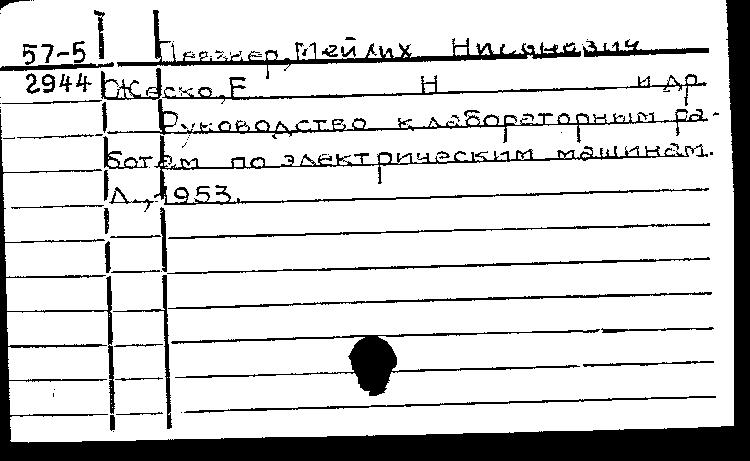 57-5 Певзнер, Мейлих Нисанович
2944 Жеско, Е Н и др
Руководство к лабораторным ра-
ботам по электрическим машинам.
Л., 1953.